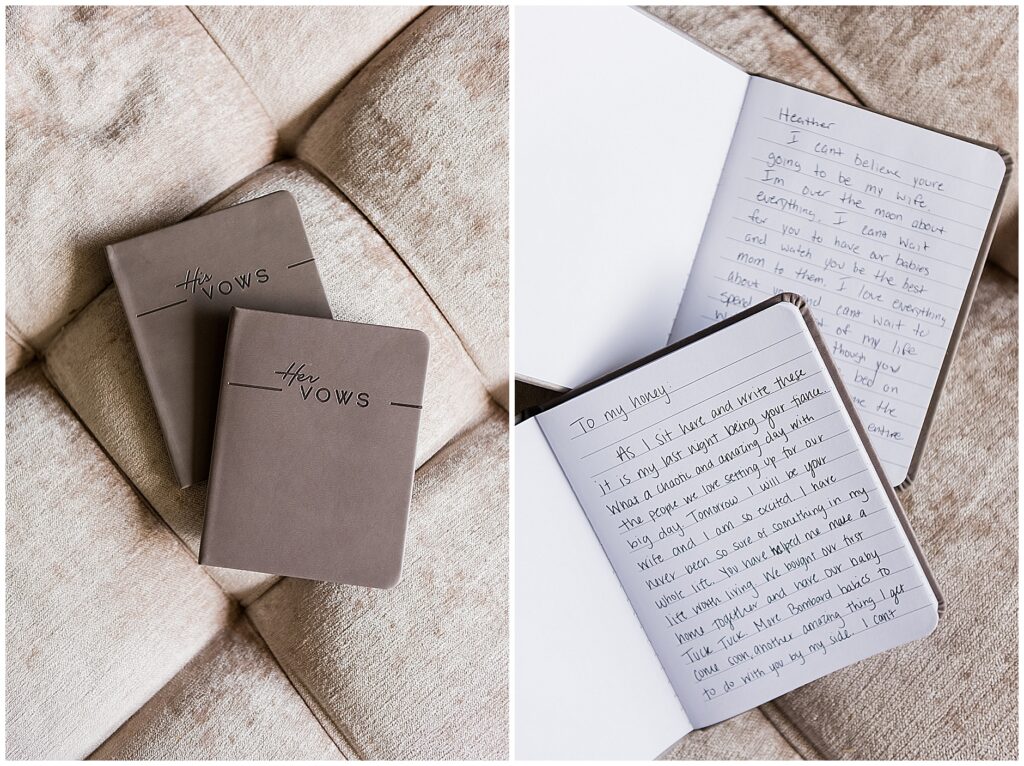 His
VOWS
Her
VOWS
Heather
I cant believe youre
going to be my wife.
I'm over the moon about
everything. I cant wait
for you to have our babies
and watch you be the best
mom to them. I love everything
about you and cant wait to
spend
of my life
though you
bed on
the
entire
To my honey:
As I sit here and write these
it is my last night being your fiance.
What a chaotic and amazing day with
the people we love setting up for our
big day. Tomorrow I will be your
wife and I am so excited. I have
never been so sure of something in my
whole life. You have helped me make a
life worth living. We bought our first
home together and have our baby
Tuck Tuck. More Bombard babies to
come soon, another amazing thing I get
to do with you by my side. I cant